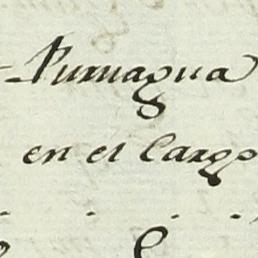 Pumagua
en el Cargo